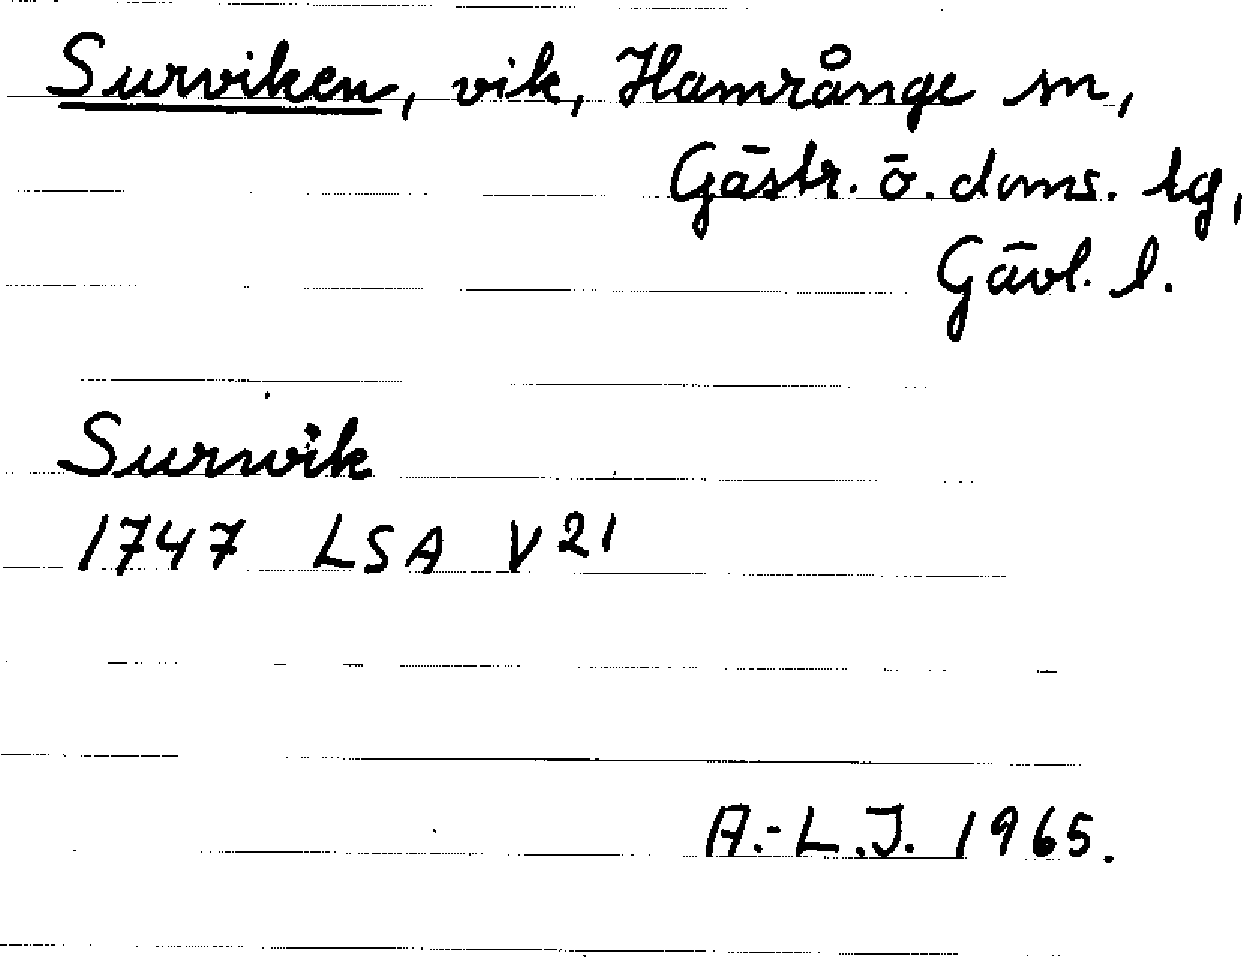 Surviken, vik, Hamrånge sn,
Gästr. ö. doms. lg,
Gävl. l.
Surwik
1747 LSA V21
A.-L.J. 1965.